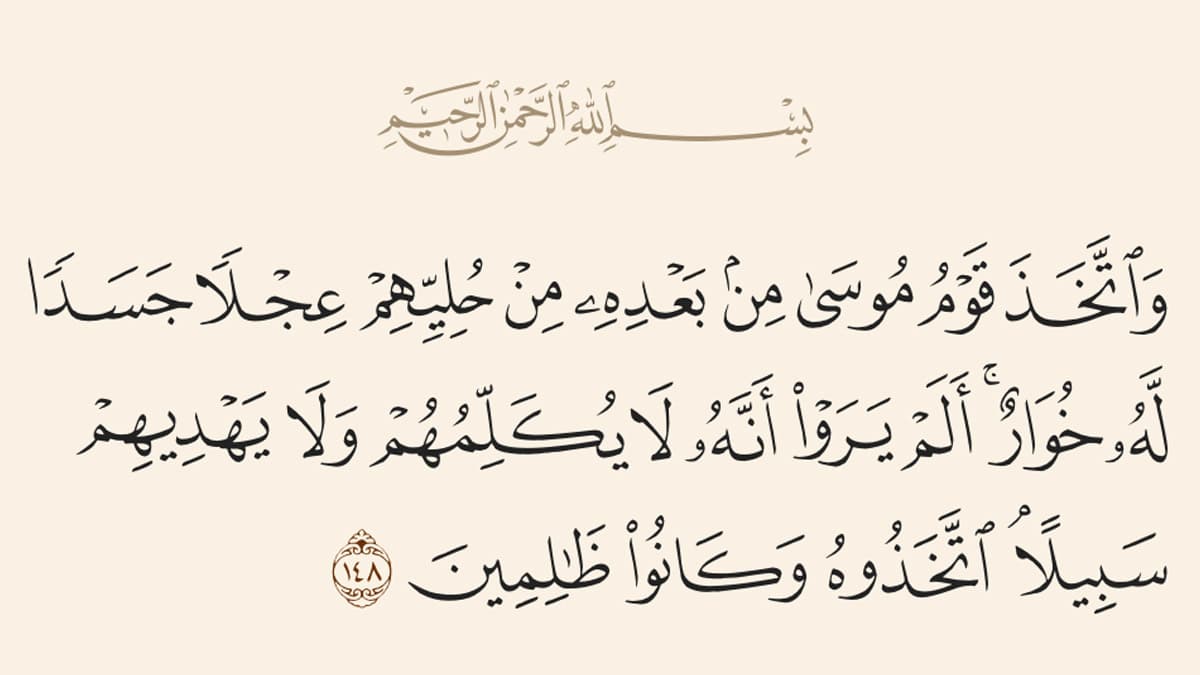 بِسْمِ ٱللَّهِ ٱلرَّحْمَٰنِ ٱلرَّحِيمِ
وَٱتَّخَذَ قَوْمُ مُوسَىٰ مِنۢ بَعْدِهِۦ مِنْ حُلِيِّهِمْ عِجْلًا جَسَدًا
لَّهُۥ خُوَارٌ ۚ أَلَمْ يَرَوْا۟ أَنَّهُۥ لَا يُكَلِّمُهُمْ وَلَا يَهْدِيهِمْ
سَبِيلًا ۘ ٱتَّخَذُوهُ وَكَانُوا۟ ظَـٰلِمِينَ ١٤٨